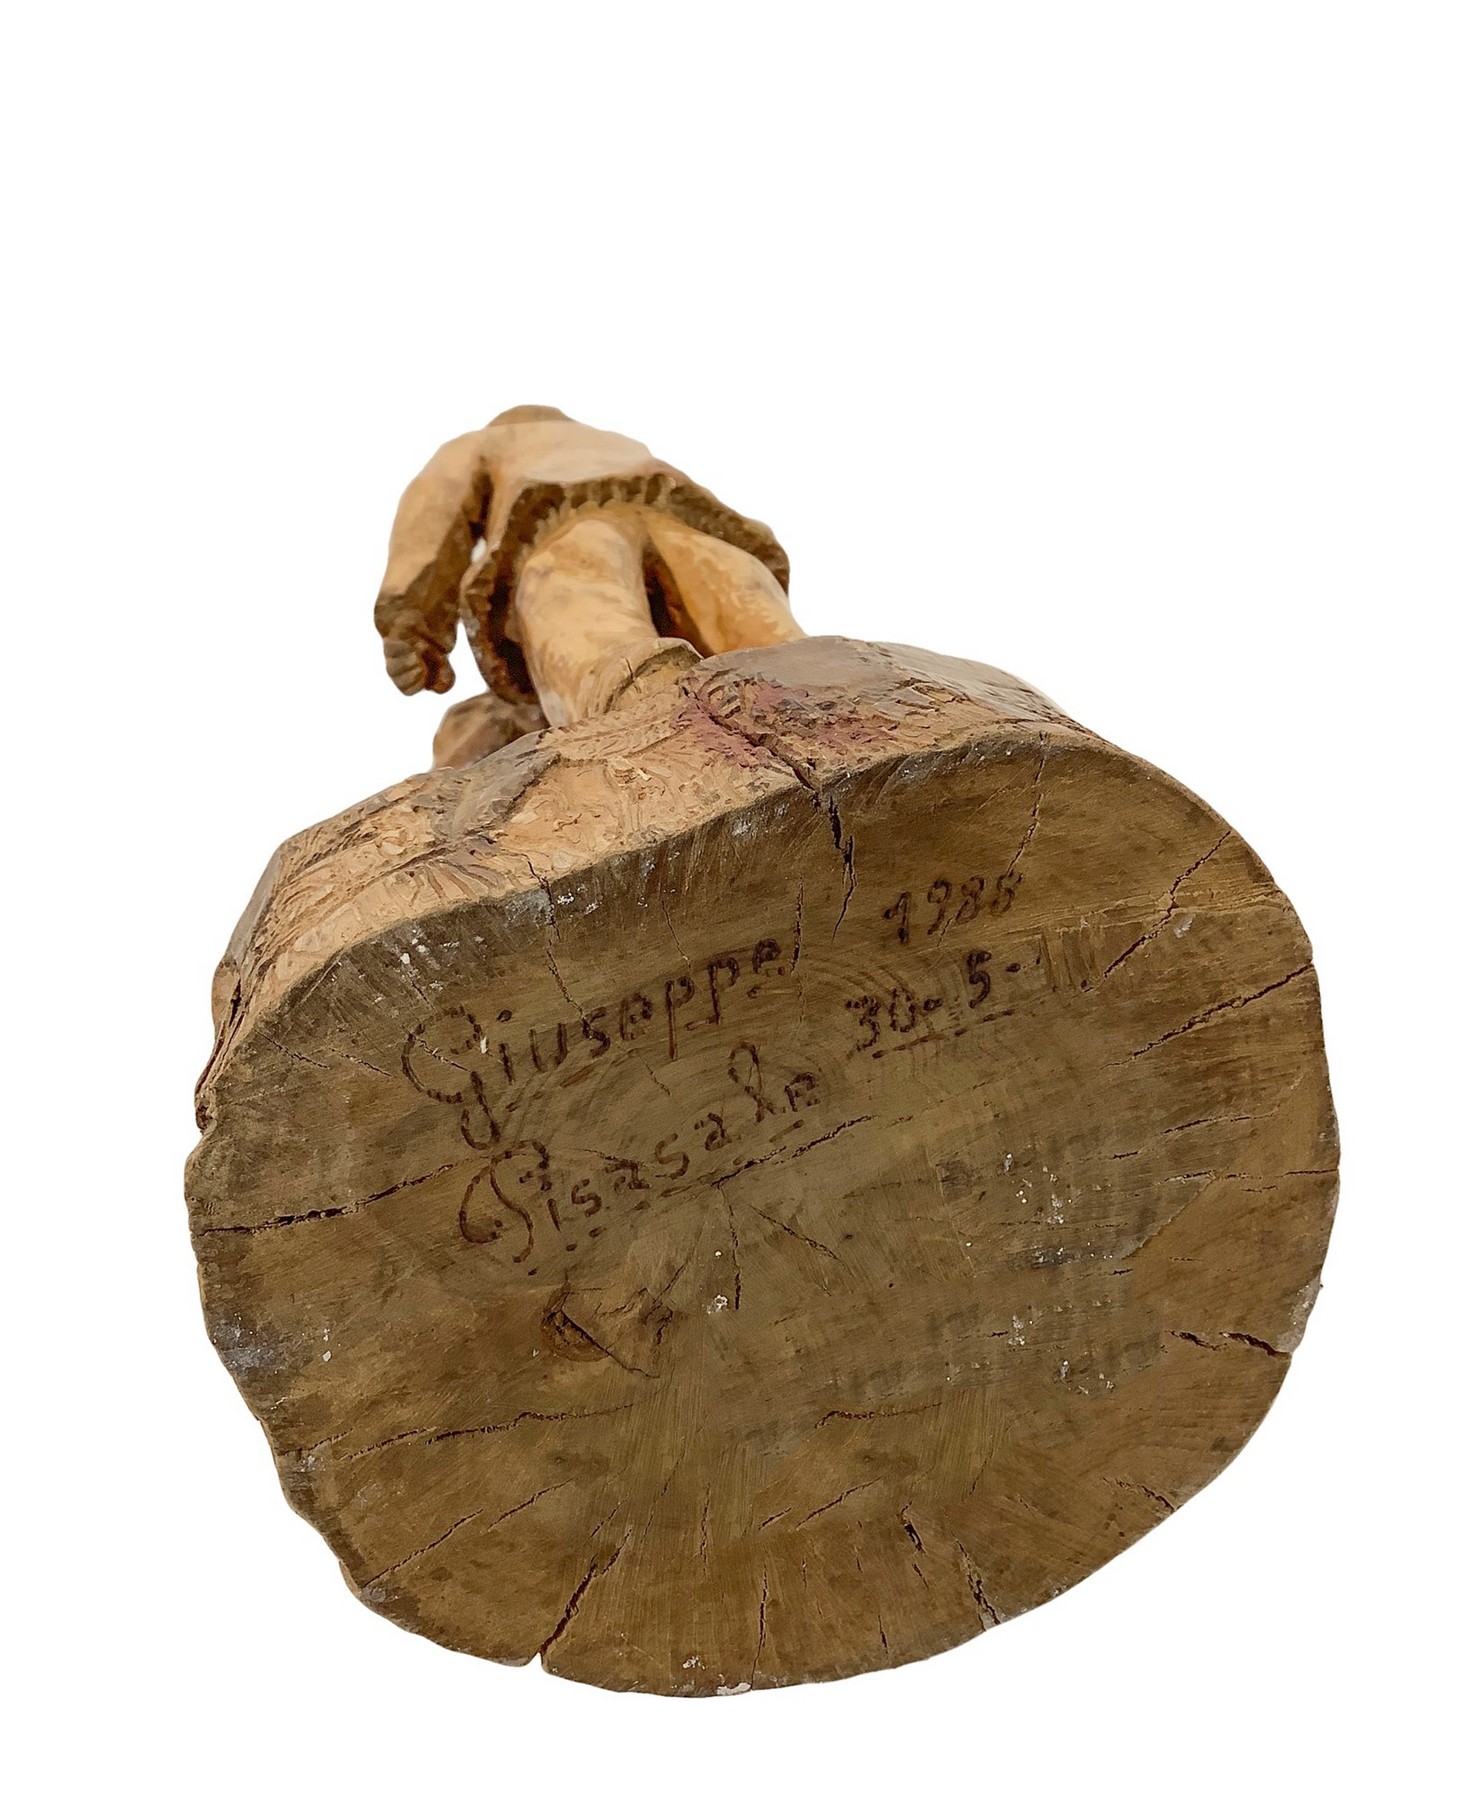 Giuseppe 1988
Pisasale 30-5-